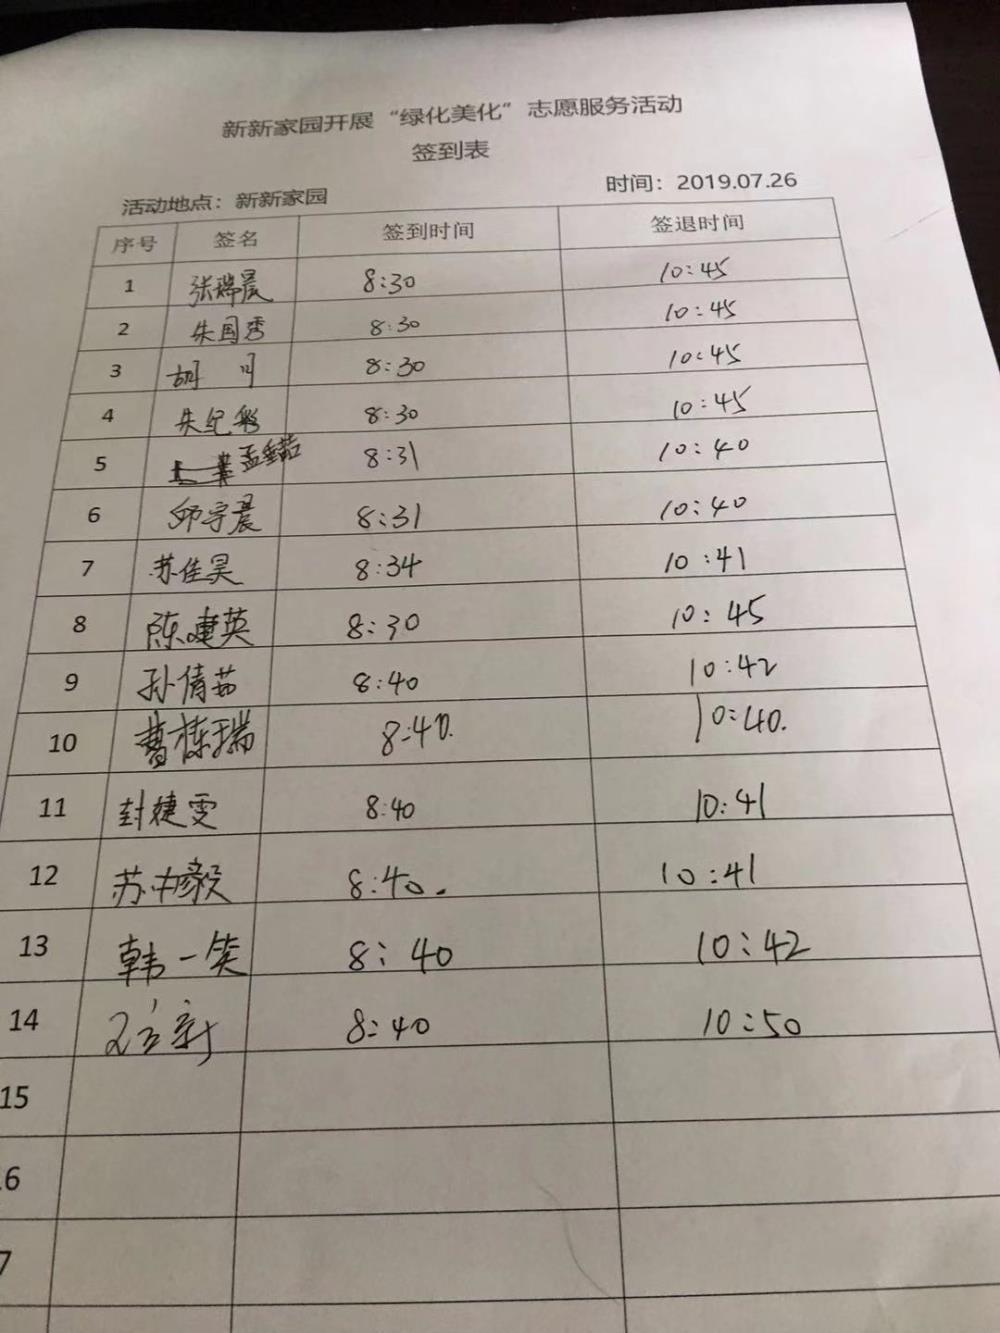 新新家园开展“绿化美化”志愿服务活动
签到表
活动地点：新新家园 时间：2019.07.26
序号 签名 签到时间 签退时间
1 张瑞晨 8:30 10:45
2 朱国秀 8:30 10:45
3 胡月 8:30 10:45
4 朱纪彩 8:30 10:45
5 孟 8:31 10:40
6 邱宇晨 8:31 10:40
7 苏佳昊 8:34 10:41
8 陈建英 8:30 10:45
9 孙倩茹 8:40 10:42
10 曹栋瑞 8:40. 10:40.
11 封婕雯 8:40 10:41
12 苏毅 8:40. 10:41
13 韩一笑 8:40 10:42
14 新 8:40 10:50
15
6
7